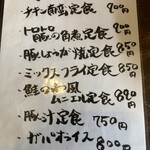 ・チキン南蛮定食 900円
・トロトロ
豚の角煮定食 900円
・豚しょうが焼定食 850円
・ミックスフライ定食 850円
・鮭の和風
ムニエル定食 890円
・豚汁定食 750円
・ガパオライス 800円